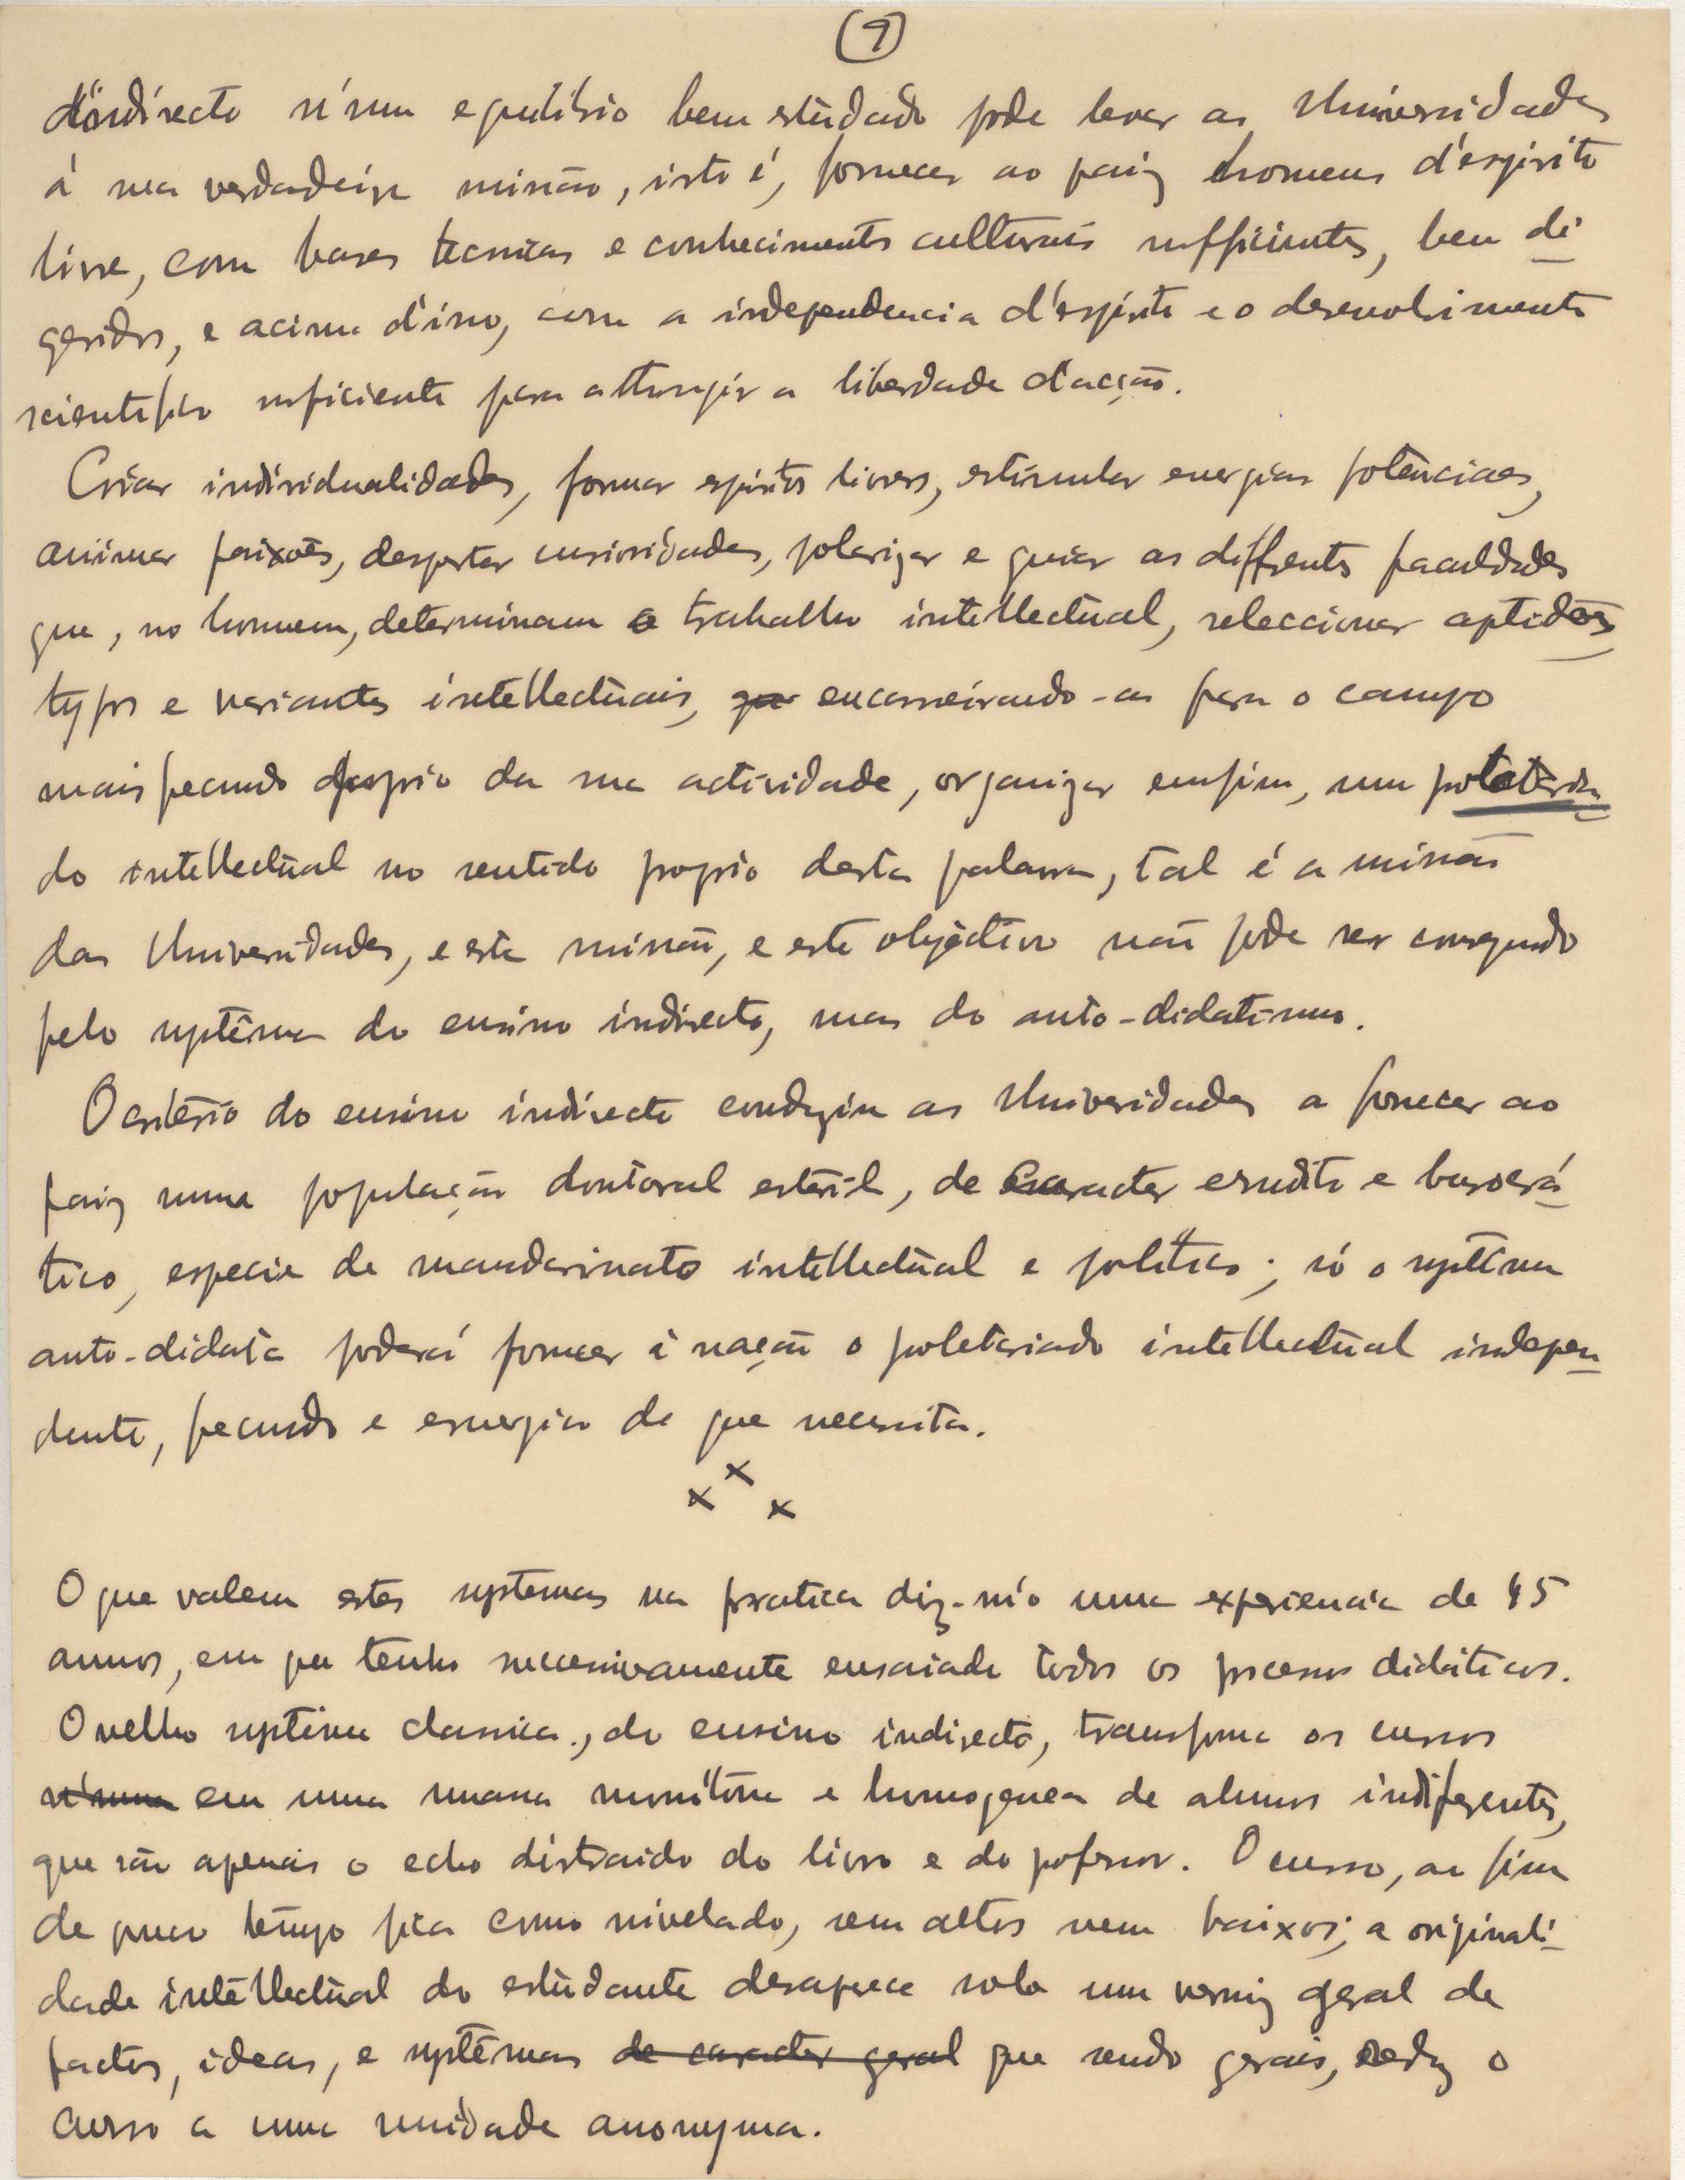 (9)
d'indirecto n'um equilibrio bem estudado pode levar as Universidades
á sua verdadeira missão, isto é, fornecer ao paiz homens d'espirito
livre, com bases tecnicas e conhecimentos culturais sufficientes, bem di
geridos, e acima d'isso, com a independencia d'espirito e o desenvolvimento
scientifico suficiente para attingir a liberdade d'acção.
Criar individualidades, formar espiritos livres, estimular energias potenciaes,
animar paixões, despertar curiosidades, polarizar e guiar as diffrentes faculdades
que, no homem, determinam o trabalho intellectual, seleccionar aptidões
typos e variantes intellectuais, que encarreirando-as para o campo
mais fecundo proprio da sua actividade, organizar emfim, um proletaria
do intellectual no sentido proprio desta palavra, tal é a missão
das Universidades, e esta missão, e este objéctivo não pode ser conseguido
pelo systema do ensino indirecto, mas do auto-didatismo.
O criterio do ensino indirecto conduziu as Universidades a fornecer ao
paiz uma população doutoral esteril, de caracter erudito e burocrá
tico, especie de mandarinato intellectual e politico; só o systema
auto-didata poderá fornecer á nação o proletariado intellectual indepen
dente, fecundo e energico de que necessita.
x x x
O que valem estes systemas na pratica diz-m'o uma experiencia de 45
annos, em que tenho successivamente ensaiado todos os processos didáticos.
O velho systema classico, do ensino indirecto, transforma os cursos
n'uma em uma massa monótona e homogenea de alumnos indiferentes,
que são apenas o echo distraido do livro e do professor. O curso, ao fim
de pouco tempo fica como nivelado, sem altos nem baixos; a originali-
dade intellectual do estudante desaparece sob um verniz geral de
factos, ideas, e systemas de caracter geral que sendo gerais, reduz o
curso a uma unidade anonyma.